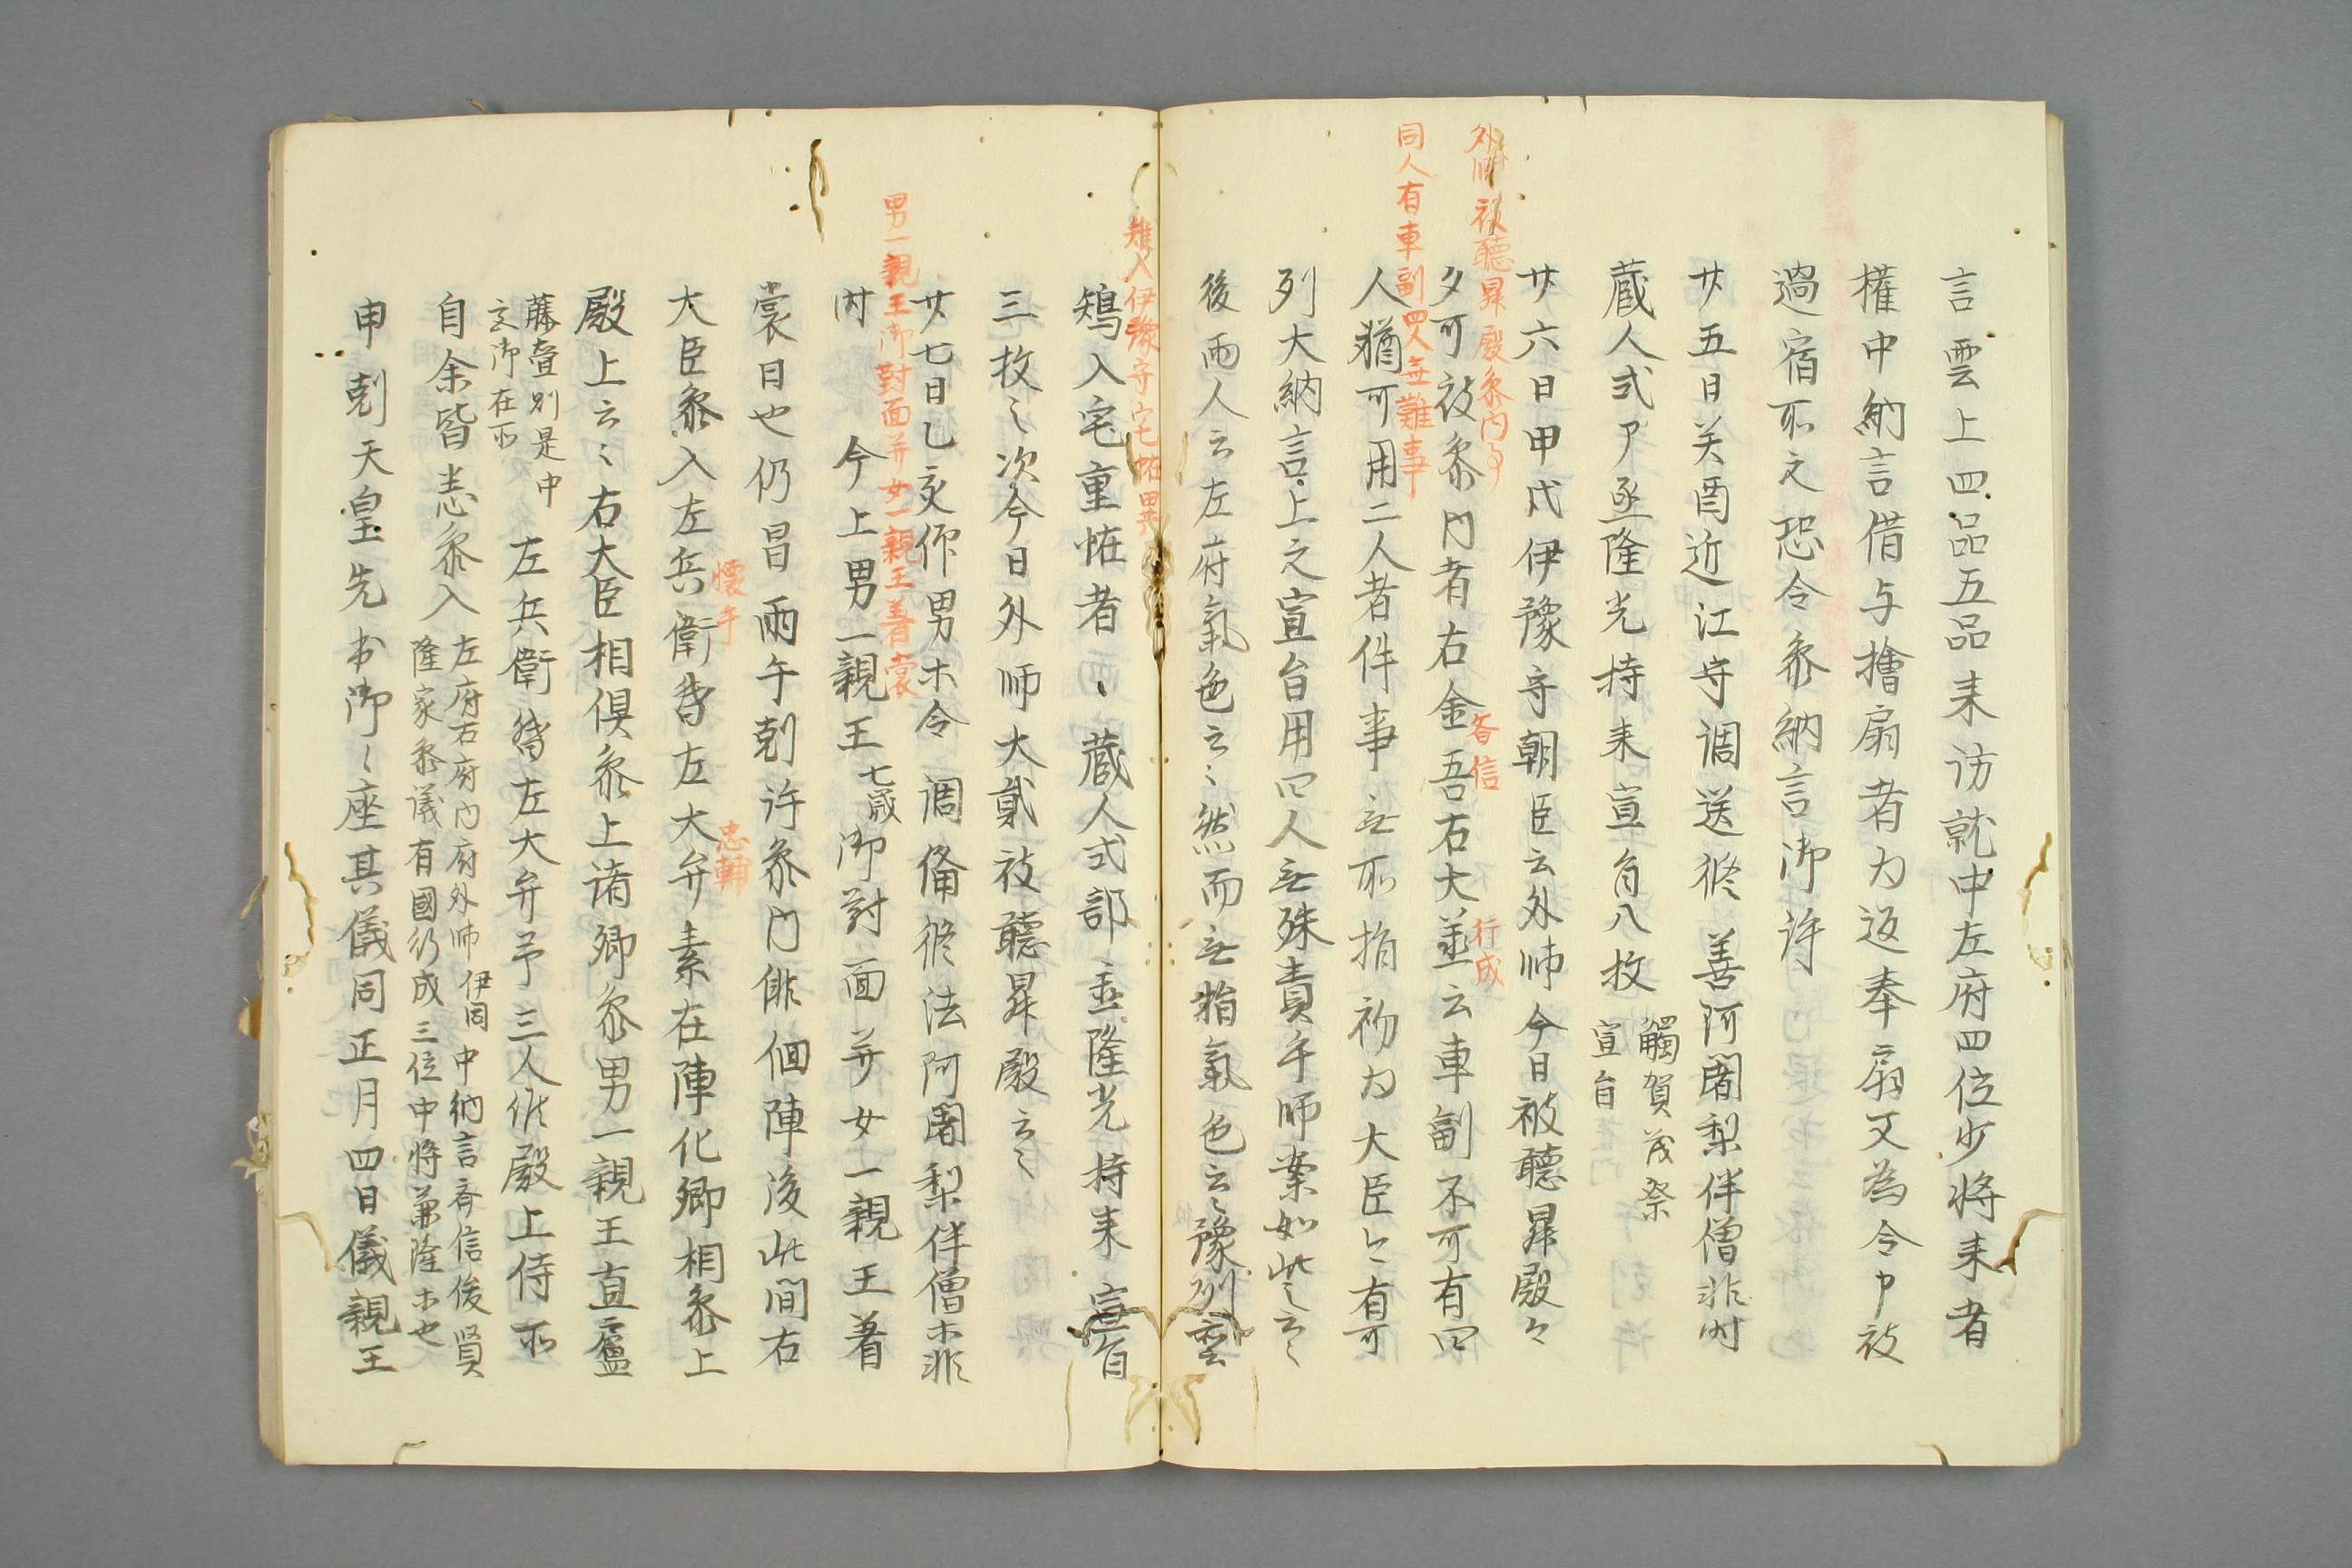 言雲上四品五品来访就中左府四位少将来者
権中納言借与檜扇者为返奉扇又為令申被
過宿所之恐令参納言御許
廿五日癸酉近江守调送修善阿闍梨伴僧非时
蔵人式ア丞隆光持来宣旨八枚
觸賀茂祭
宣旨
外帥被聽昇殿参内事
廿六日甲戌伊豫守朝臣云外帥今日被聽昇殿々
同人有車副四人無難事
夕可被参内者右金吾右大並云車副不可有四
斉信
行成
人猶可用二人者件事無所指初为大臣々有可
列大納言上之宣旨用四人無殊責乎師案如此之云々
後両人云左府氣色云々然而無指氣色云々豫列雲
雉入伊豫守宅恠異
鵄入宅重恠者、蔵人式部丞隆光持来宣旨
三枚之次今日外帥大貳被聽昇殿云々
廿七日乙亥作男木令调備修法阿闍梨伴僧木非
男一親王御對面并女一親王着裳
时今上男一親王七歳御對面并女一親王着
裳日也仍昌雨午剋许参門俳徊陣後此間右
大臣参入左兵衛督左大弁素在陣化卿相参上
懐平
忠輔
殿上云々右大臣相倶参上诸卿参男一親王直廬
藤壺別是中
宮御在所
左兵衛督左大弁予三人候殿上侍所
自余皆悉参入
左府右府内府外帥伊周中納言斉信俊賢
隆家参議有國行成三位中将兼隆木也
申剋天皇先出御々座其儀同正月四日儀親王